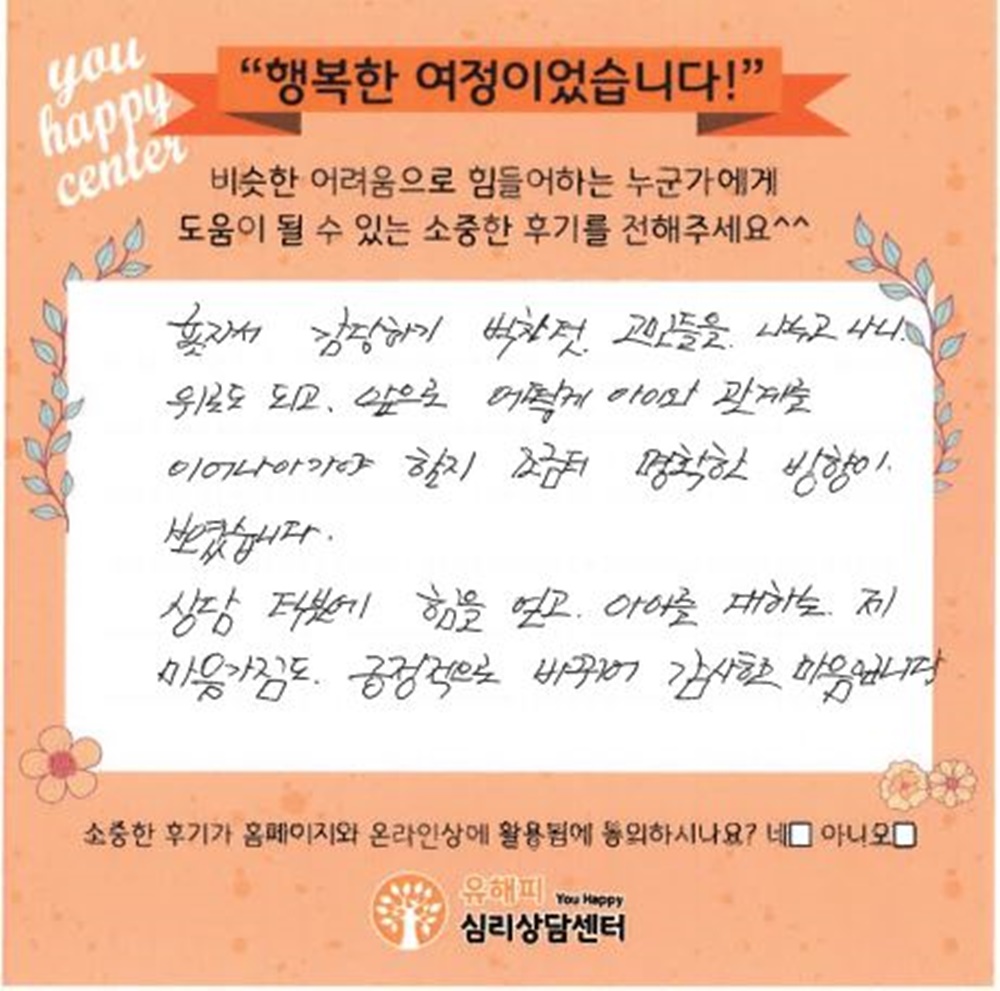 you
happy
center
“행복한 여정이었습니다!”
비슷한 어려움으로 힘들어하는 누군가에게
도움이 될 수 있는 소중한 후기를 전해주세요^^
혼자서 감당하기 벅찼던 고민들을 나누고 나니
위로도 되고, 앞으로 어떻게 아이와 관계를
이어나아가야 할지 조금더 명확한 방향이
보였습니다.
상담 덕분에 힘을 얻고 아이를 대하는 제
마음가짐도 긍정적으로 바뀌어 감사한 마음입니다
소중한 후기가 홈페이지와 온라인상에 활용됨에 동의하시나요? 네□ 아니오□
유해피 You Happy
심리상담센터